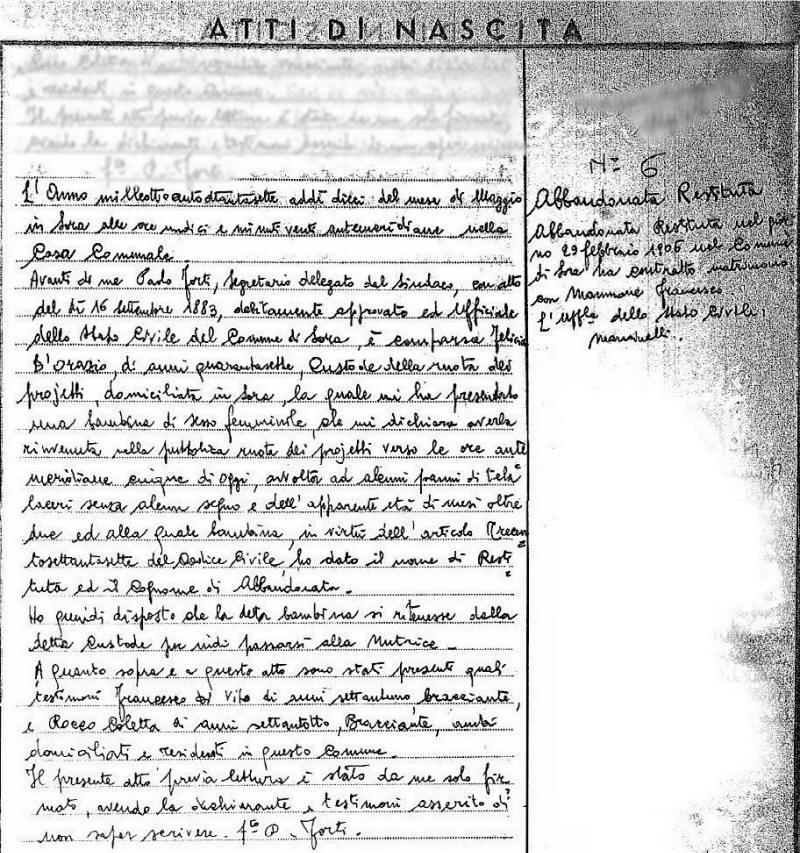 ATTI DI NASCITA
e residenti in questo Comune.
Il presente atto previa lettura è stato da me solo firmato,
avendo la dichiarante e testimoni
Fto P. Forti
L'Anno milleottocentottantasette addì dieci del mese di Maggio
in Sora alle ore undici e minuti venti antimeridiane nella
Casa Comunale.
Avanti di me Paolo Forti, Segretario delegato dal Sindaco, con atto
del dì 16 settembre 1883, debitamente approvato ed Ufficiale
dello Stato Civile del Comune di Sora, è comparsa Felicia
D'Orazio, di anni quarantasette, Custode della ruota dei
projetti, domiciliata in Sora, la quale mi ha presentato
una bambina di sesso femminile, che mi dichiara averla
rinvenuta nella pubblica ruota dei projetti verso le ore ante
meridiane cinque di oggi, avvolta ad alcuni panni di tela
laceri senza alcun segno e dell'apparente età di mesi oltre
due ed alla quale bambina, in virtù dell'articolo Trecen
tosettantasette del Codice Civile, ho dato il nome di Resti
tuta ed il Cognome di Abbandonata.
Ho quindi disposto che la detta bambina si ritenesse dalla
detta Custode per indi passarsi alla Nutrice.
A quanto sopra e a questo atto sono stati presenti quali
testimoni Francesco di Vito di anni settantuno, bracciante,
e Rocco Coletta di anni settantotto, Bracciante, ambi
domiciliati e residenti in questo Comune.
Il presente atto previa lettura è stato da me solo fir
mato, avendo la dichiarante e testimoni asserito di
non saper scrivere. Fto P. Forti.
N° 6
Abbandonata Restituta
Abbandonata Restituta nel gior
no 29 febbraio 1906 nel Comune
di Sora ha contratto matrimonio
con Mammone Francesco
L'Uffle dello Stato Civile,
Mancinelli.